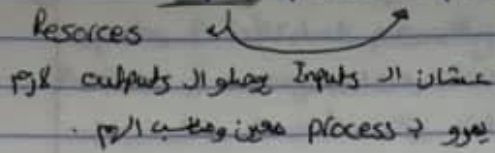 Resorces
عشان ال Inputs يوصلو ال outputs لازم
يمرو ب process معين ومناسب الهم .